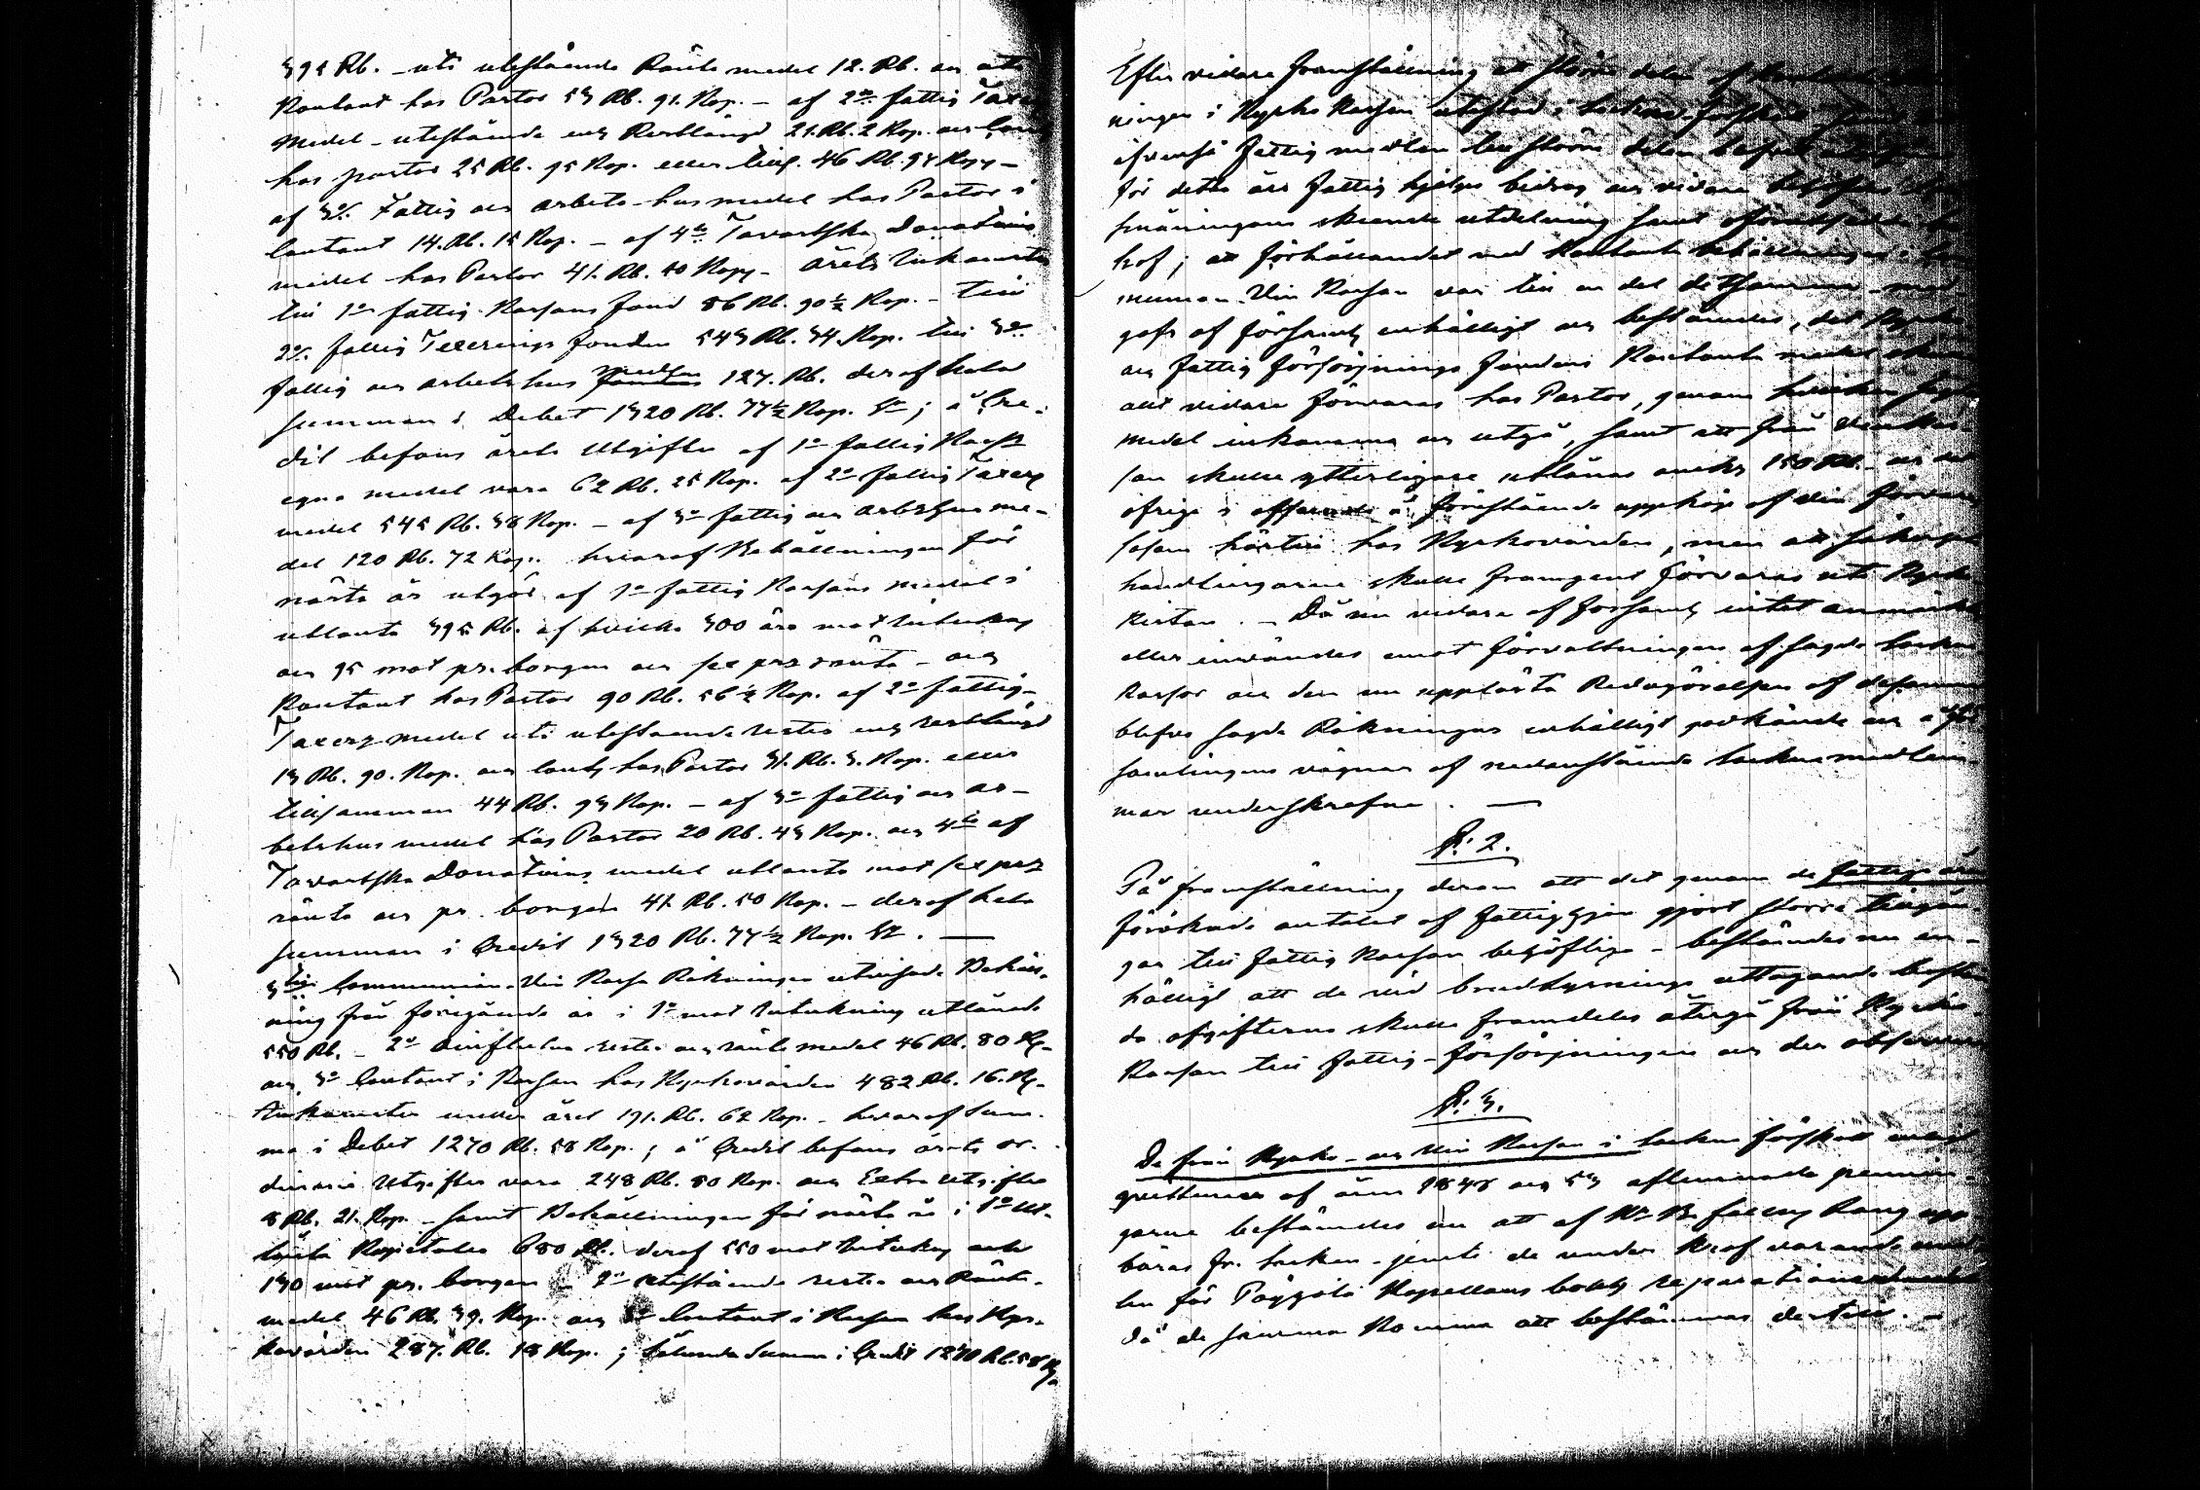 395 Rb. – uti utestående Ränte medel 12. Rb. och uti
Kontant hos Pastor 53 Rb. 91. Kop. – af 2:o fattig Taxer
medel – utestående enl. Restlängd 21. Rb. 2 Kop. och Cont
hos pastor 25 Rb. 95 Kop. eller tills. 46 Rb. 97 Kop –
af 3:o Fattig och arbets-hus medel hos Pastor i
contant 14. Rb. 15 Kop. – af 4:o Tavastska Donations
medel hos Pastor 41. Rb. 50 Kop – årets Inkomster
till 1:o fattig Kassans fond 86 Rb. 90½ Kop. – till
2:o fattig Taxerings fonden 543 Rb. 34. Kop. till 3:o
fattig och arbets hus medlen 127. Rb. deraf hela
summan i Debet 1320 Rb. 77½ Kop. Sr; å Cre-
dit befans årets Utgifter af 1:o fattig Kass
egna medel vara 62 Rb. 25 Kop. af 2:o fattig Taxer
medel 545 Rb. 38 Kop. – af 3:o fattig och arbetshus me-
del 120 Rb. 72 Kop. hvaraf Behållningen för
nästa år utgör af 1:o fattig Kassans medel i
utlånta 395 Rb. af hvilka 300 äro mot Inteckn
och 95 mot pr. borgen och sex prc ränta – och
Kontant hos Pastor 90 Rb. 56½ Kop. af 2:o fattig-
Taxer medel uti utestående rester enl restlängd
13 Rb. 90. Kop. och cont hos Pastor 31. Rb. 3. Kop. eller
tillsamman 44 Rb. 93 Kop. – af 3:o fattig och ar-
betshus medel hos Pastor 20 Rb. 43 Kop. och 4:o af
Tavastska Donations medel utlånta mot sex prc
ränta och pr. borgen 41. Rb. 50 Kop. – deraf hela
summan i Credit 1320 Rb. 77½ Kop. Sr. —
3:die Communion-Vin Kassa Räkningen utvisade Behåll-
ning från föregående år i 1:o mot Inteckning utlånade
550 Rb. – 2:o rester och ränte medel 46 Rb. 80 K.
och 3:o Contant i Kassan hos Kyrkovärden 482 Rb. 16. K.
Inkomster under året 191. Rb. 62 Kop. – hvaraf Sum-
ma i Debet 1270 Rb. 58 Kop.; å Credit befans årets or-
dinarie Utgifter vara 248 Rb. 80 Kop. och Extra utgifter
8 Rb. 21. Kop. – samt Behållningen för nästa år i 1:o Ut-
lånta Kapitaler 680 Rb. deraf 550 mot Inteckn och
130 mot pr. borgen – 2:o utestående rester och Ränte-
medel 46 Rb. 39. Kop. och 3:o Contant i Kassan hos Kyr-
kovärden 287. Rb. 18 Kop.; Sålunda Summa i Credit 1270 Rb. 58 K.
Efter vidare framställning att större delen af
ningen i Kyrko Kassan utestod i Socknens förskott
äfvenså fattig medlen till större delen
för detta års fattig hjelps bidrag och vidare
pränningens skeende utdelning samt oförutsedda be-
hof; att förhållandet med Kontanta behållningen i Com-
munion-Vin Kassan var till en del detsamma – med-
gafs af Församl enhälligt och bestämdes, det Kyrko
och Fattig försörjnings Fondens Kontanta medel skulle
allt vidare förvaras hos Pastor, genom hvilken
medel inkomma och utgå, samt att från Vin Kas-
san skulle ytterligare utlånas andra 150 Rb. och det
öfriga i å förestående uppköp af vin förvaras
såsom härtill hos Kyrkovärden, men att
handlingarne skulle framgent förvaras uti Kyrko
Kistan. – Då nu vidare af Församl intet anmärktes
eller invändes emot förvaltningen af sagde Socken
Kassor och den nu upplästa Redogörelsen af desamma
blefvo sagde Räkningar enhälligt godkände och å för-
samlingens vägnar af nedanstående Sockne medlem-
mar underskrefne. —
§: 2.
På framställning derom att det genom de fattiga åren
förökade antalet af fattighjon gjort större tillgån-
gar till Fattig Kassan behöflige – bestämdes nu en-
hälligt att de vid brudkyrnings uttagande bestäm-
da afgifterne skulle framdeles återgå från Kyrko
Kassan till Fattig-försörjningen och der
§: 3.
De från Kyrko- och Vin Kassan i Sockne förskott
qvittencer af åren 1848 och 53 aflemnade pennin-
garne bestämdes nu att af Kassan
bäras fr. Socken – jemte de under Kraf varande
len för Pöyjälä Kapellans reparation
då de summa komma att bestämmas dertill. –